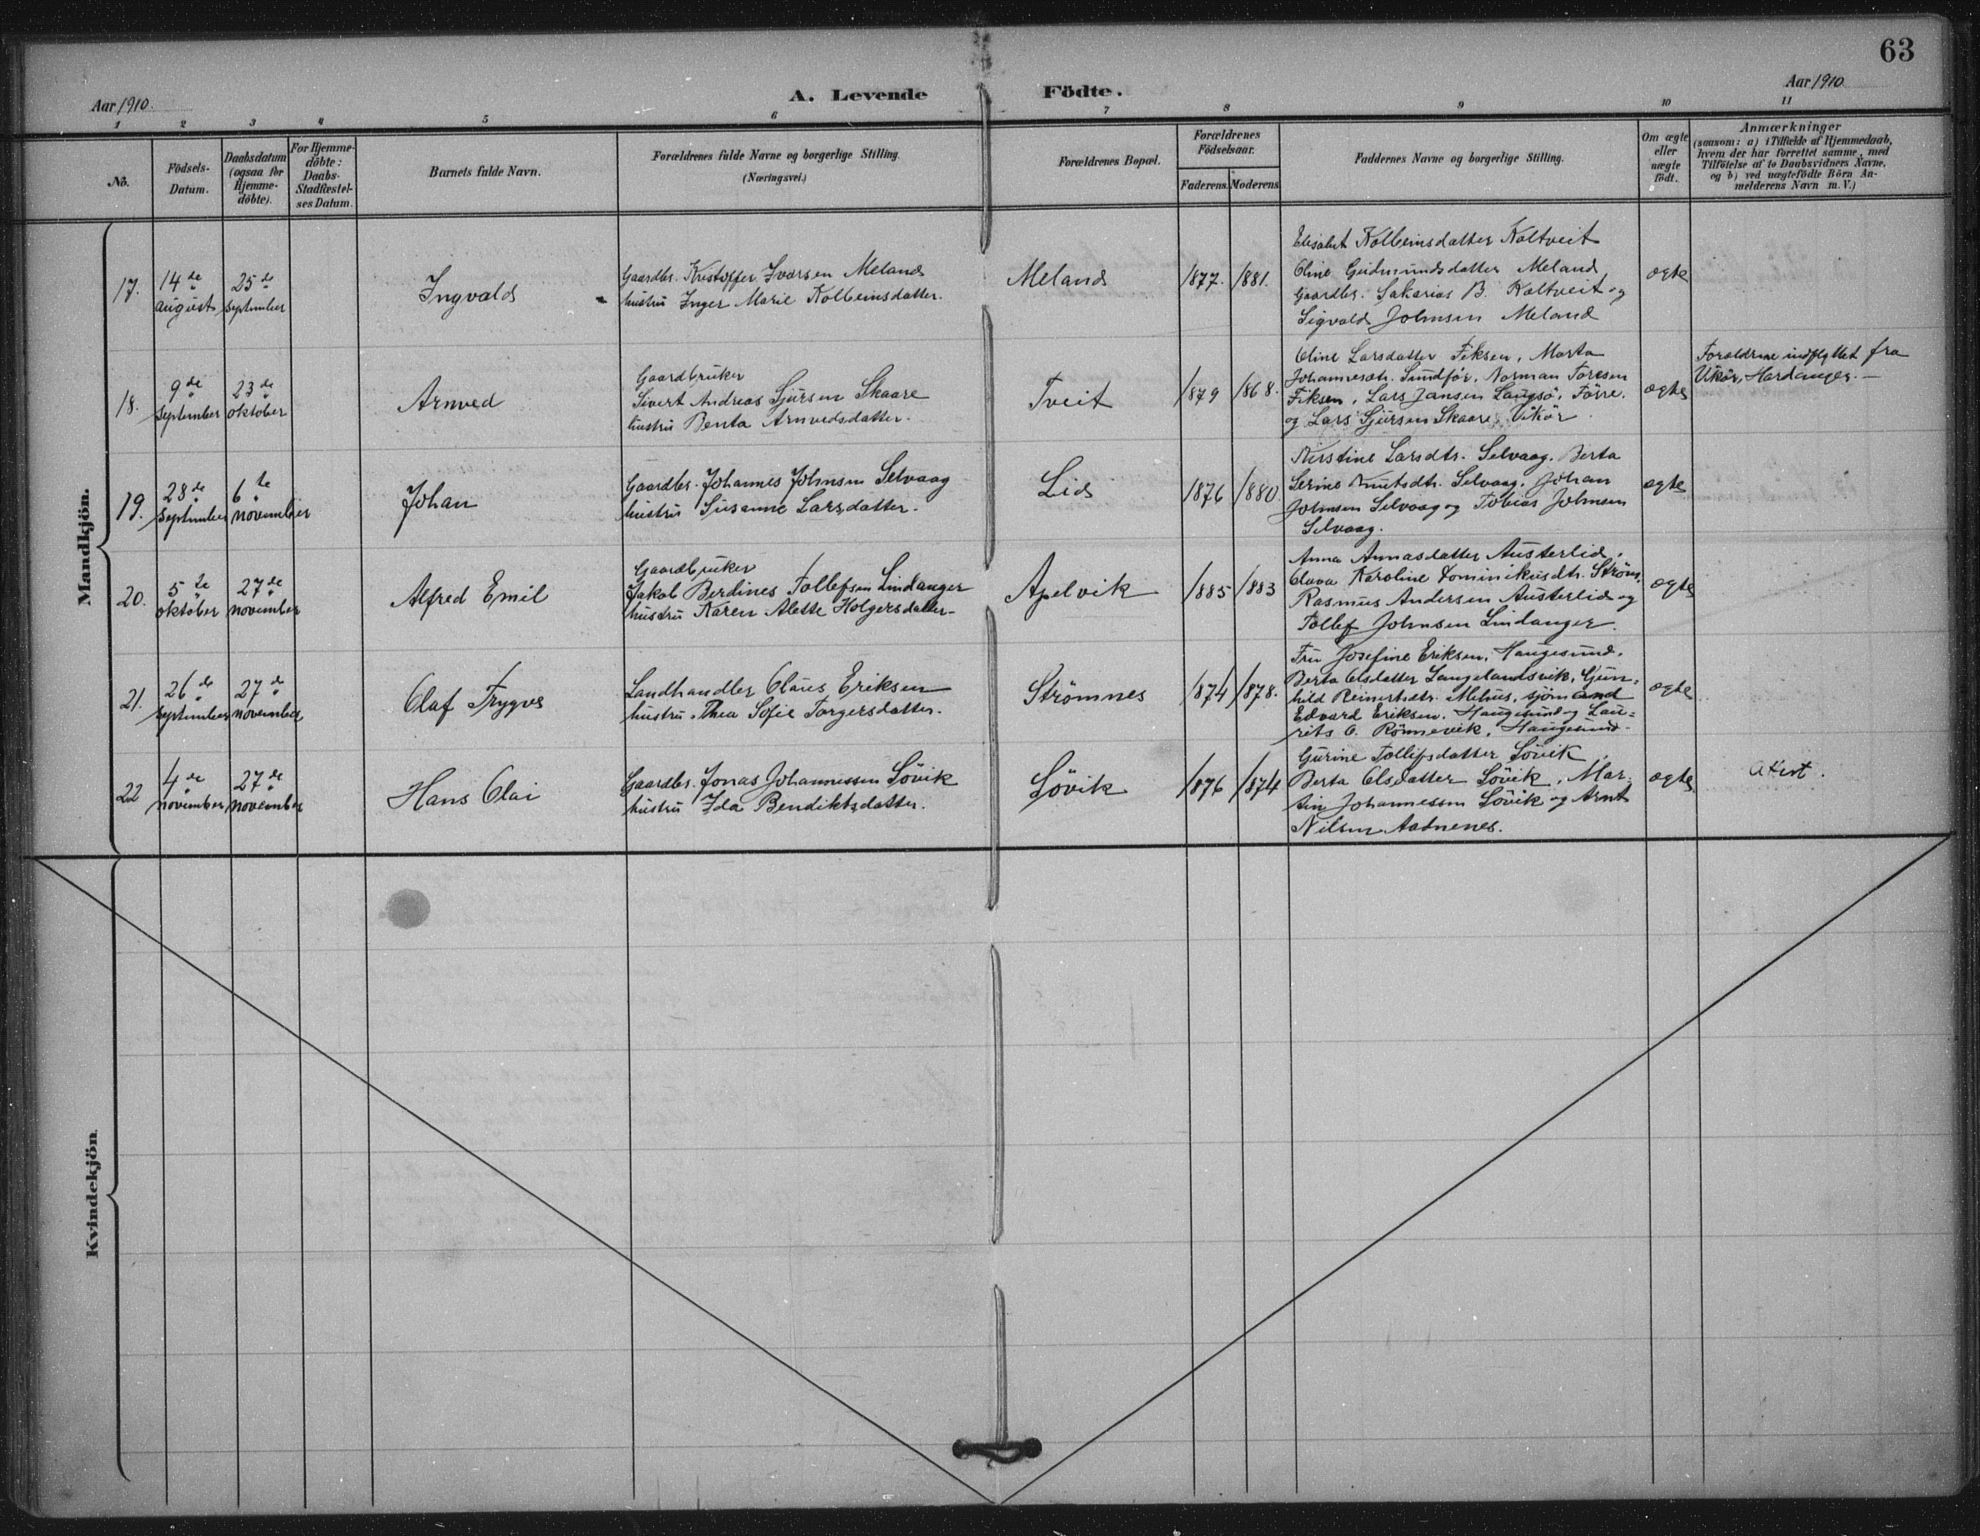 63
Aar 1910.
A. Levende Födte.
Aar 1910
1 2 3 4 5 6 7 8 9 10 11
No.
Födsels-
Datum.
Daabsdatum
(ogsaa for
Hjemme-
döbte).
For Hjemme-
döbte:
Daabs-
Stadfæstel-
ses Datum.
Barnets fulde Navn.
Forældrenes fulde Navne og borgerlige Stilling.
(Næringsvei.)
Forældrenes Bopæl.
Forældrenes
Födselsaar.
Faderens. Moderens.
Faddernes Navne og borgerlige Stilling.
Om ægte
eller
uægte
födt.
Anmærkninger
(saasom: a) i Tilfælde af Hjemmedaab,
hvem der har forrettet samme, med
Tilföielse af to Daabsvidners Navne,
og b) ved uægtefödte Börn An-
melderens Navn m. V.)
Mandkjön.
17.
14de
august
25de
september
Ingvald
Gaardbr. Kristoffer Ivarsen Meland
hustru Inger Marie Kolbeinsdatter.
Meland
1877. 1881.
Elisabet Kolbeinsdatter Koltveit
Oline Gudmundsdatter Meland,
Gaardbr. Sakarias B. Koltveit og
Sigvald Johnsen Meland
ægte
18.
9de
september
23de
oktober
Arnved
Gaardbruker
Sivert Andreas Sjursen Skaare
hustru Benta Arnvedsdatter.
Tveit
1879 1868.
Oline Larsdatter Fiksen, Marta
Johannesdtr. Sundför, Norman Toresen
Fiksen, Lars Jansen Langsö, Förre.
og Lars Sjursen Skaare, Vikör
ægte
Forældrene indflyttet fra
Vikör, Hardanger. —
19.
28de
september
6te
november
Johan
Gaardbr. Johannes Johnsen Selvaag
hustru Susanne Larsdatter.
Lid
1876 1880
Kirstine Larsdtr. Selvaag. Berta
Serine Knutsdtr. Selvaag. Johan
Johnsen Selvaag og Tobias Johnsen
Selvaag.
ægte
20.
5te
oktober
27de
november
Alfred Emil
Gaardbruker
Jakob Berdines Tollefsen Lindanger
hustru Karen Alette Holgersdatter
Apelvik
1885 1883
Anna Annasdatter Austerlid,
Olava Karoline Dominikusdtr. Ström,
Rasmus Andersen Austerlid og
Tollef Johnsen Lindanger.
ægte
21.
26de
september
27de
november
Olaf Trygve
Landhandler Olaus Eriksen
hustru Thea Sofie Torgersdatter.
Strömnes
1874 1878.
Fru Josefine Eriksen, Haugesund,
Berta Olsdatter Langelandsvik, Gun-
hild Reinertsdtr. Melhus, sjömand
Edvard Eriksen, Haugesund og Lau-
rits O. Rönnevik, Haugesund.
ægte
22
4de
november
27de
november
Hans Olai
Gaardbr. Jonas Johannessen Lövik
hustru Ida Bendiktsdatter.
Lövik
1876 1874
Gurine Tollefsdatter Lövik,
Berta Olsdatter Lövik, Mar-
tin Johannessen Lövik og Arnt
Nilsen Aadnenes.
ægte
Attest.
Kvindekjön.